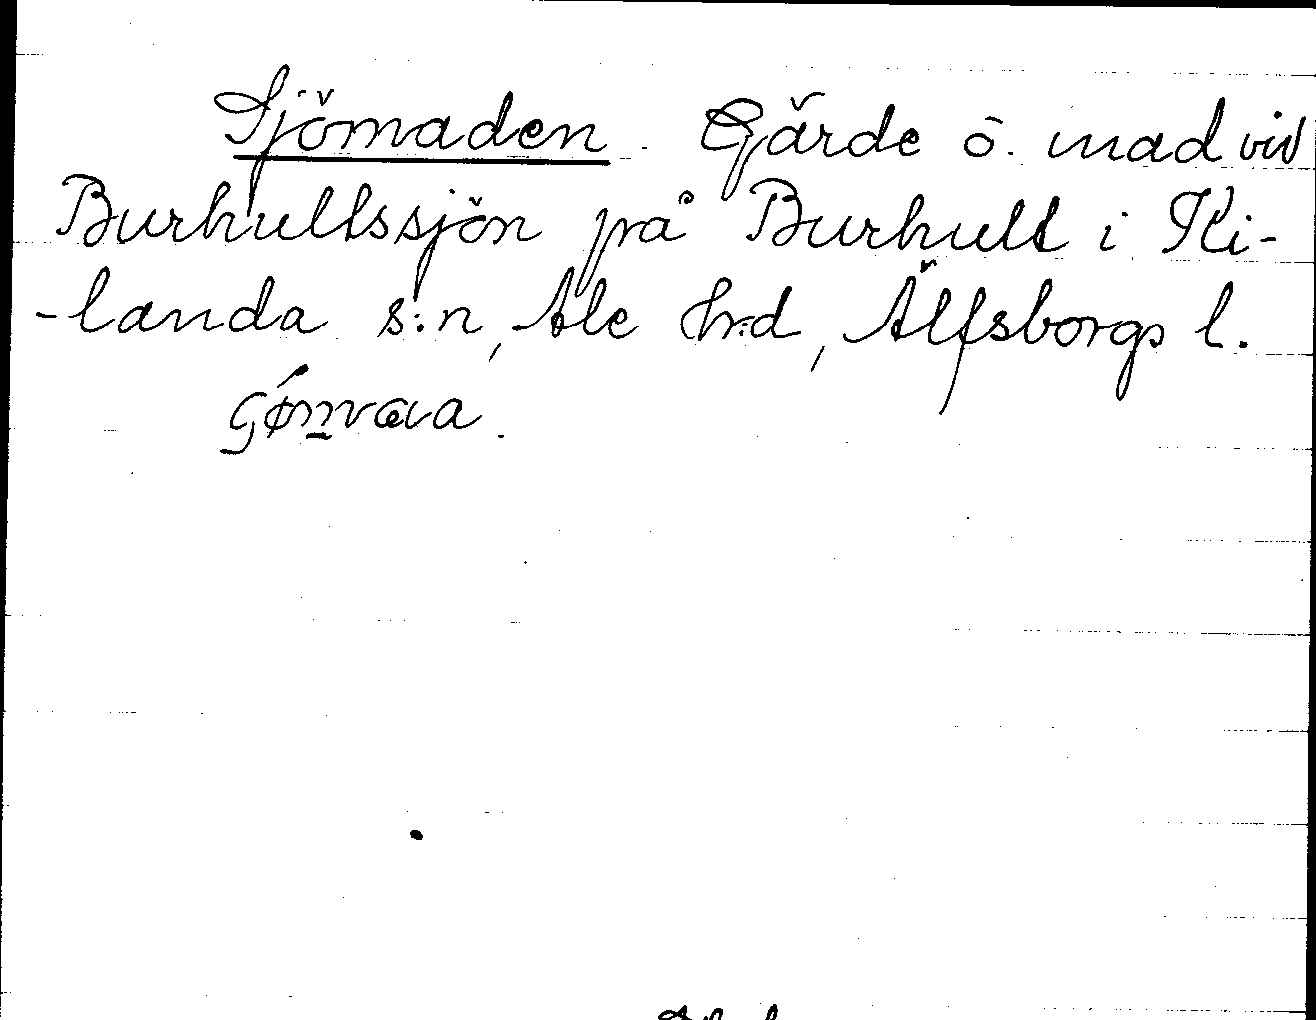 Sjömaden. Gärde o. mad vid
Burhultssjön på Burhult i Ki-
-landa s:n, Ale h:d, Älfsborgs l.